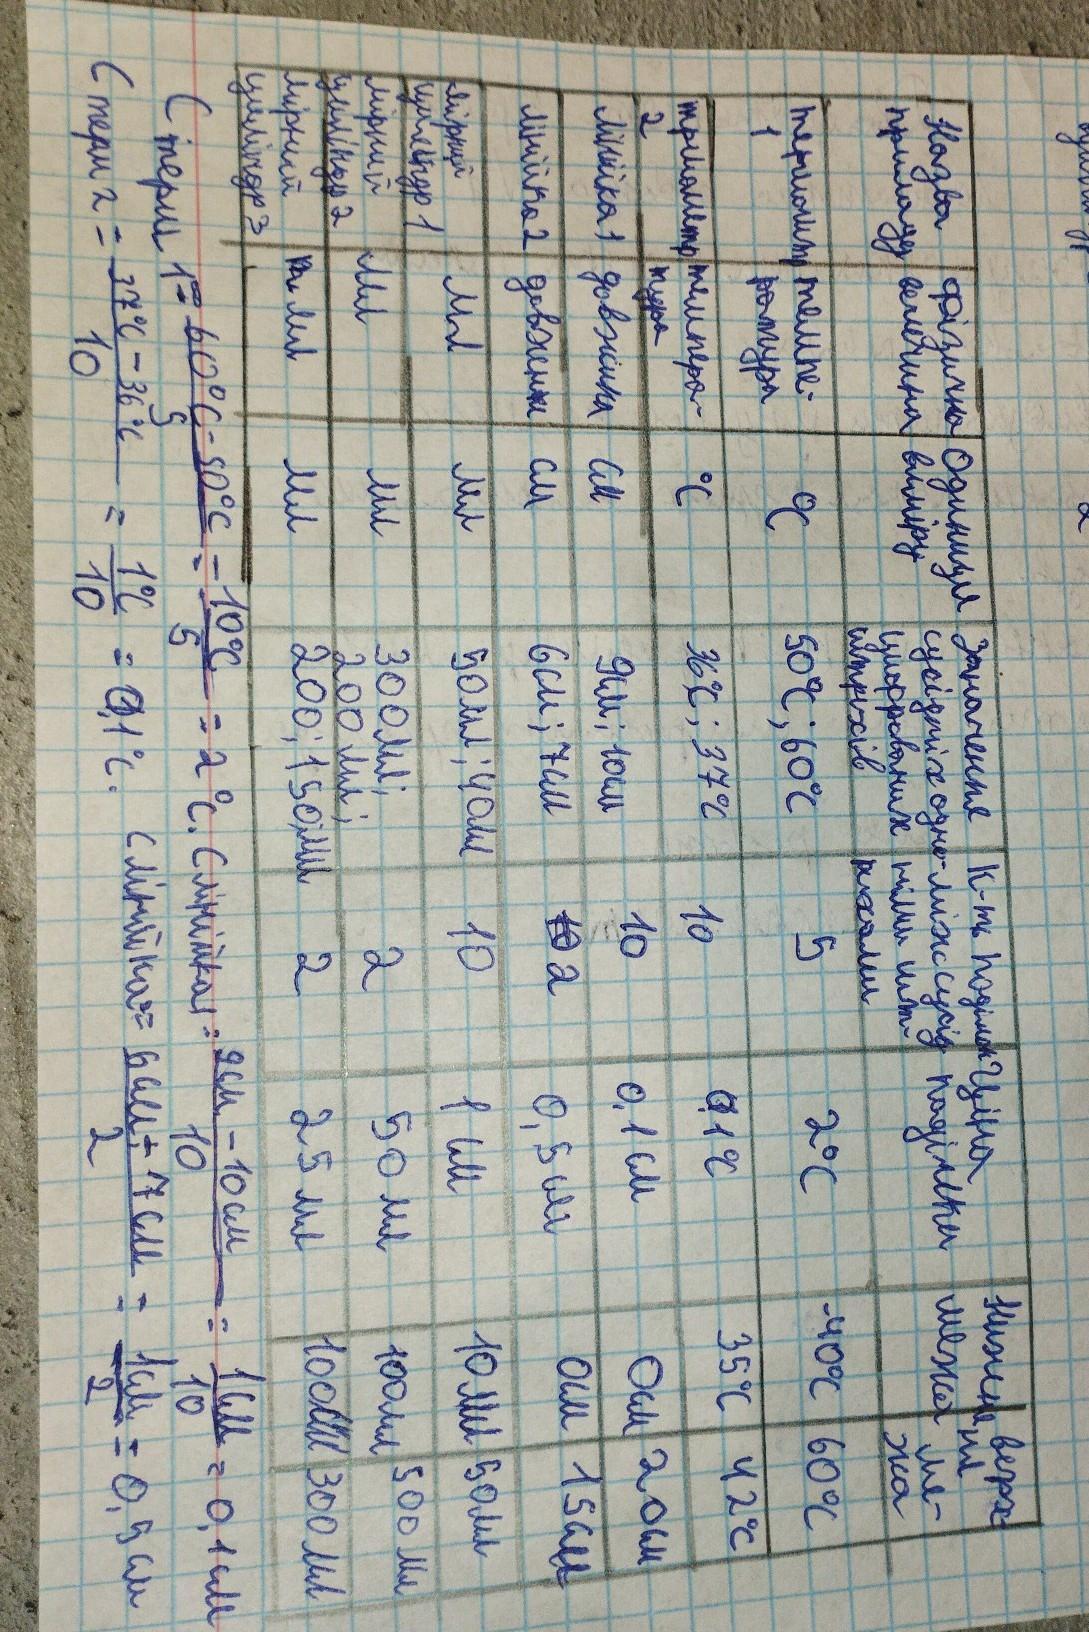 Назва приладу | Фізична величина | Одиниця виміру | Значення сусідніх оцифрованих штрихів | К-ть поділок між сусідніми штрихами | Ціна поділки | Нижня межа | верхня межа
термометр 1 | температура | °C | 50°C; 60°C | 5 | 2°C | -40°C | 60°C
термометр 2 | температура | °C | 36°C; 37°C | 10 | 0,1°C | 35°C | 42°C
Лінійка 1 | довжина | см | 9см; 10см | 10 | 0,1 см | 0см | 20см
Лінійка 2 | довжина | см | 6см; 7см | 2 | 0,5 см | 0см | 15см
Мірний циліндр 1 | Мл | мл | 50мл; 40мл | 10 | 1 см | 10мл | 50мл
мірний циліндр 2 | Мл | мл | 300мл; 200мл; | 2 | 50 мл | 100мл | 500мл
мірний циліндр 3 | мл | Мл | 200; 150мл | 2 | 25 мл | 100мл | 300мл
C терм 1 = 60°C - 50°C / 5 = 10°C / 5 = 2°C. C лінійка 1 = 9см - 10см / 10 = 1см / 10 = 0,1 см
C терм 2 = 37°C - 36°C / 10 = 1°C / 10 = 0,1°C. C лінійка 2 = 6см - 7см / 2 = 1см / 2 = 0,5 см